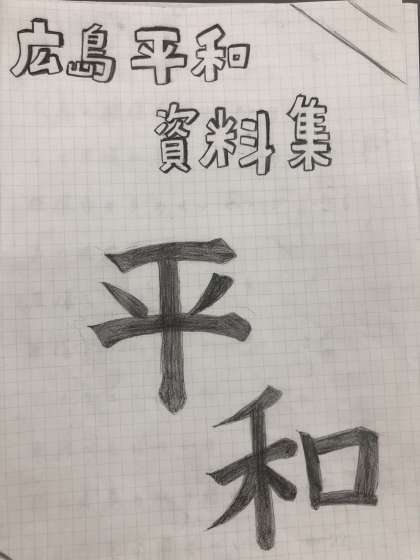 広島平和
資料集
平
和